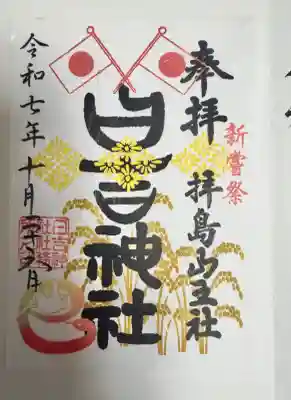 奉拝
新嘗祭
拝島山王社
日吉神社
令和七年十月